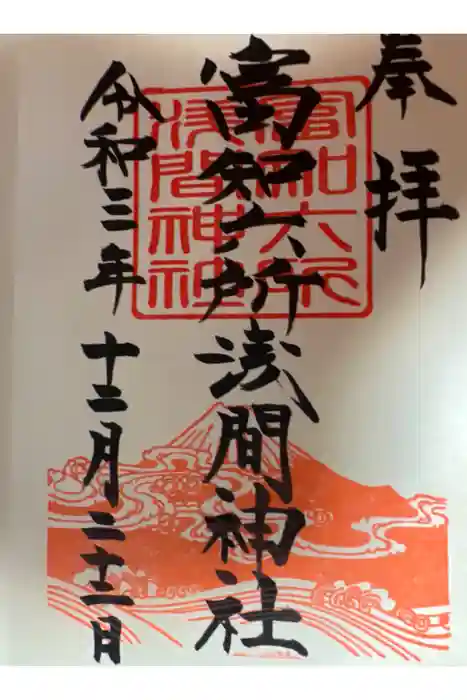 奉拝
富知六所浅間神社
令和三年 十二月二十二日
富知六所
浅間神社